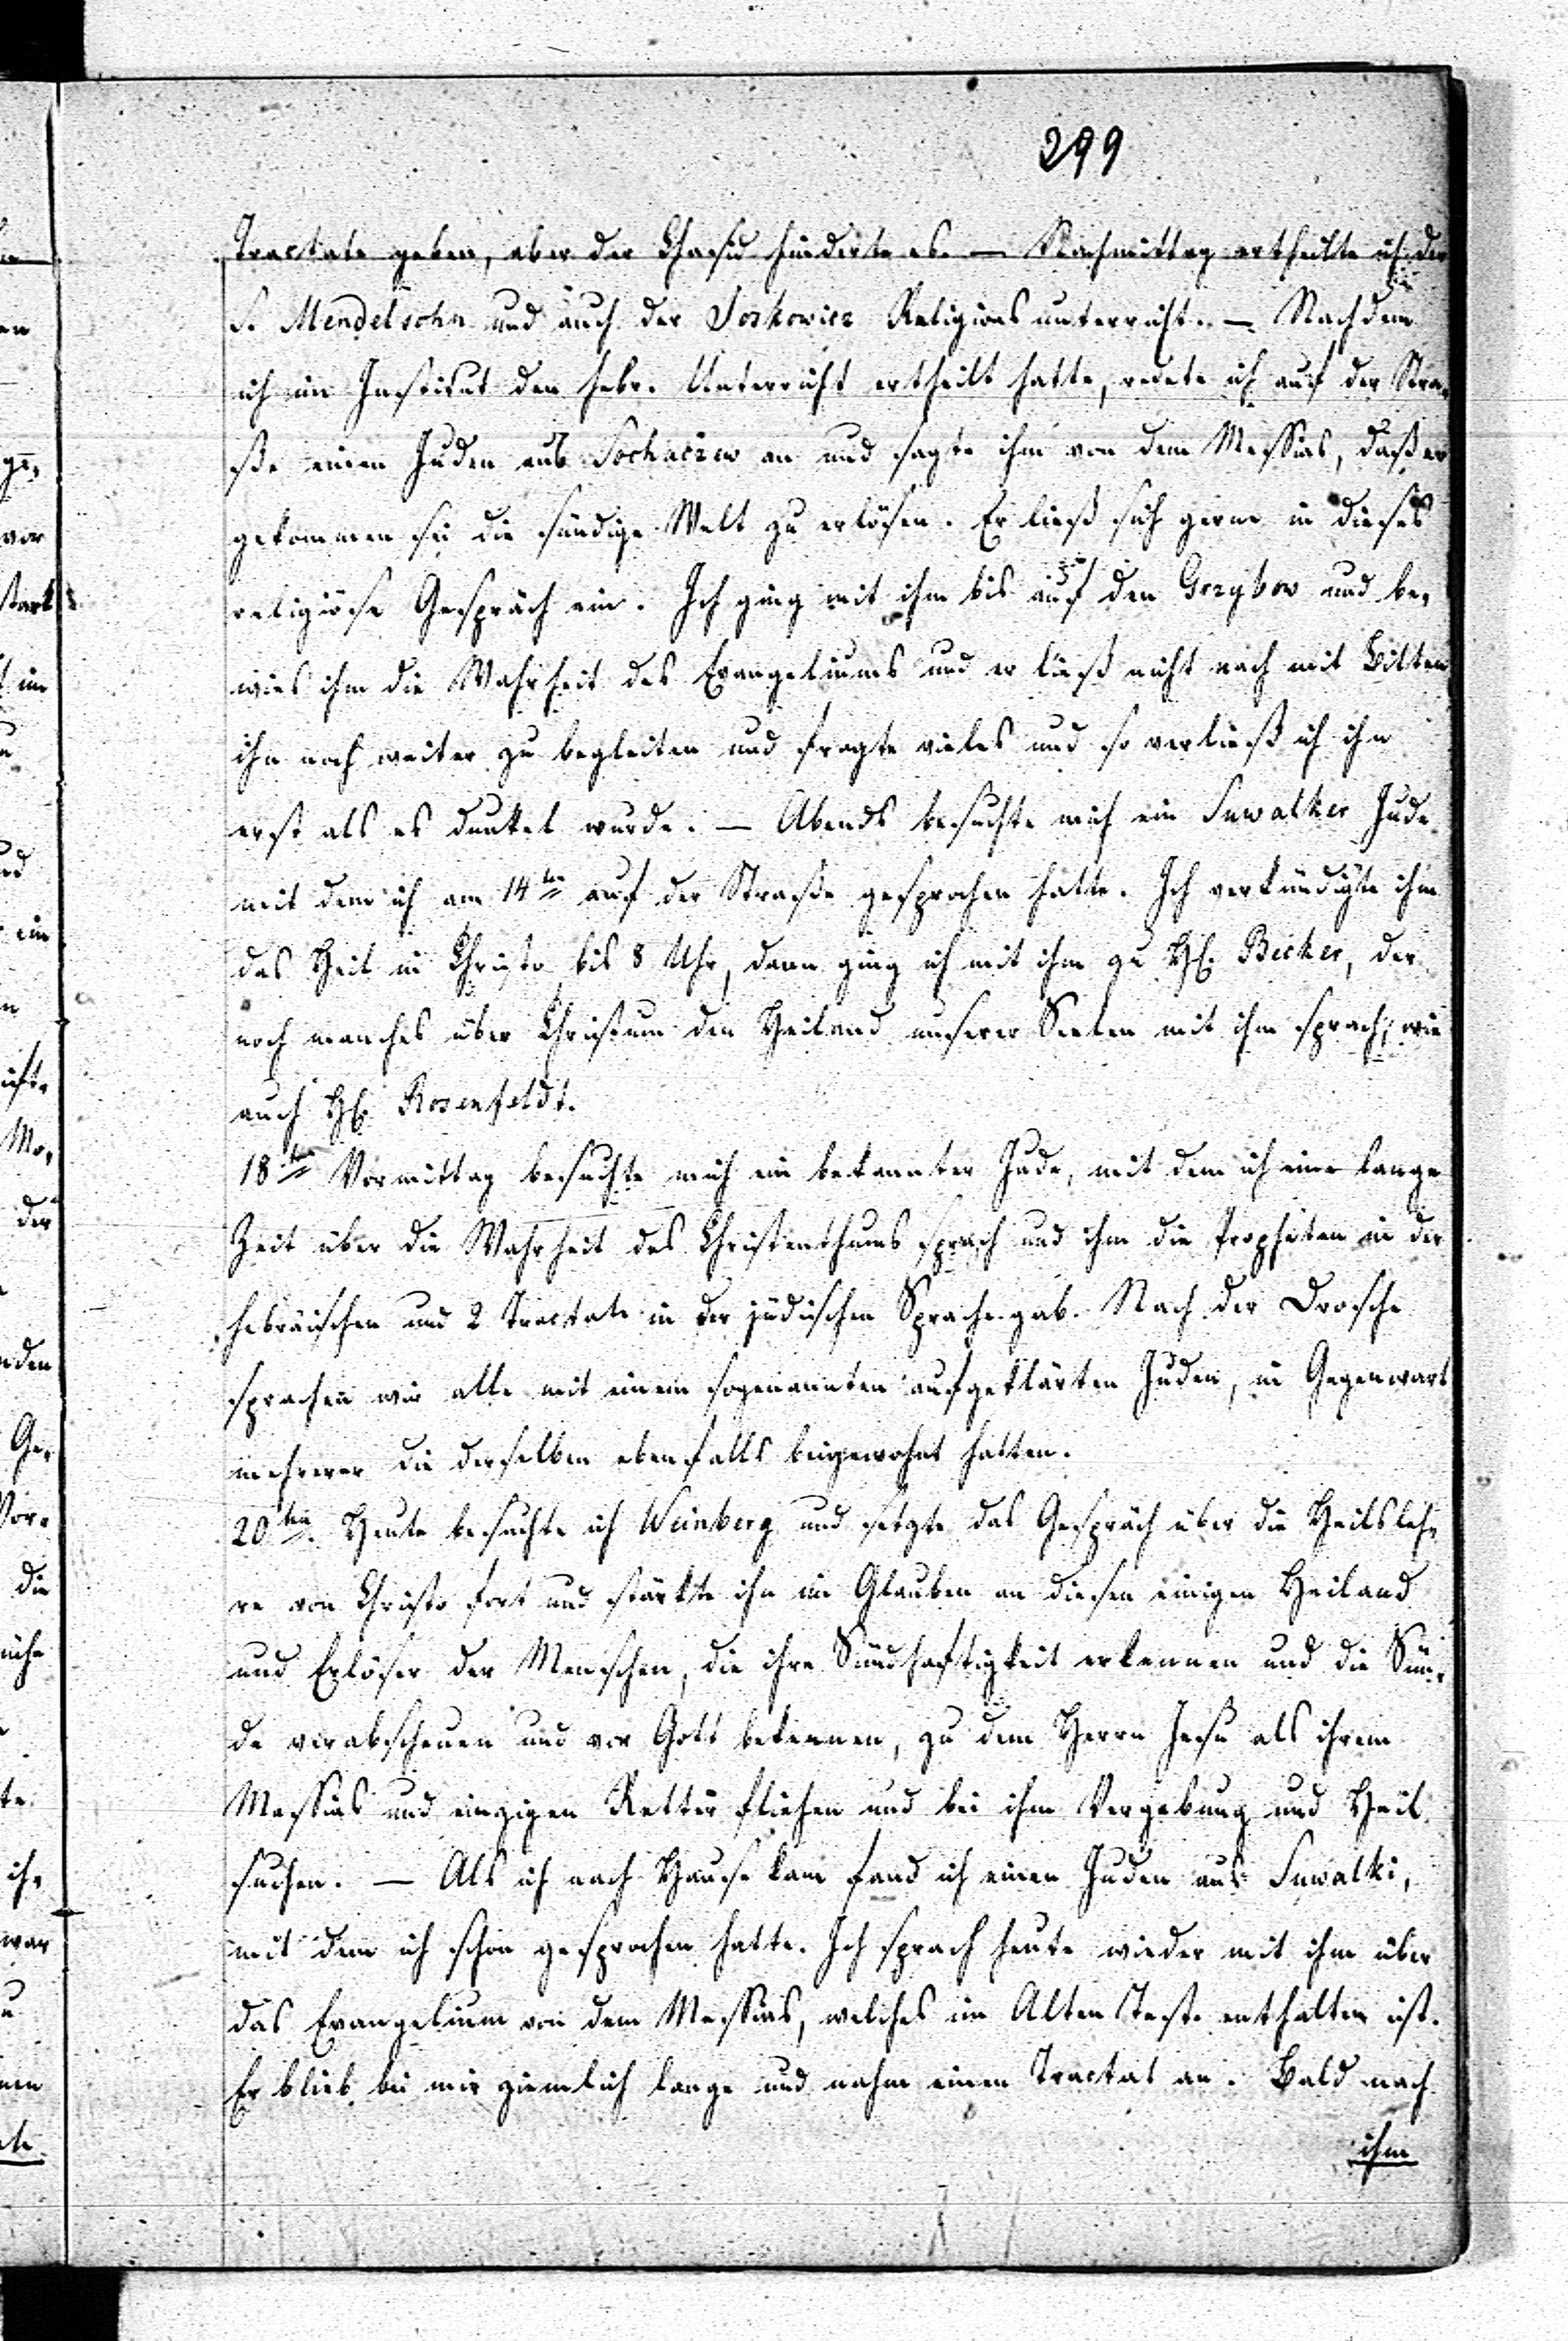 299
Tractate geben, aber der Chasid hinderte es. — Nachmittag ertheilte ich der
S. Mendelsohn und auch der Joskowicz Religionsunterricht. — Nachdem
ich im Institut den hebr. Unterricht ertheilt hatte, redete ich auf der Stra-
ße einen Juden aus Sochaczew an und sagte ihm von dem Messias, daß er
gekommen sei die sündige Welt zu erlösen. Er ließ sich gerne in dieses
religiöse Gespräch ein. Ich ging mit ihm bis auf den Grzybow und be-
wies ihm die Wahrheit des Evangeliums und er ließ nicht nach mit Bitten
ihn noch weiter zu begleiten und fragte vieles und so verließ ich ihn
erst als es dunkel wurde. — Abends besuchte mich ein Suwalker Jude
mit dem ich am 14ten auf der Straße gesprochen hatte. Ich verkündigte ihm
das Heil in Christo bis 8 Uhr, dann ging ich mit ihm zu H. Becker, der
noch manches über Christum den Heiland unserer Seelen mit ihm sprach, wie
auch H. Rosenfeldt.
18ten Vormittag besuchte mich ein bekannter Jude, mit dem ich eine lange
Zeit über die Wahrheit des Christenthums sprach und ihm die Propheten in der
hebräischen und 2 Tractate in der jüdischen Sprache gab. Nach der Drosche
sprachen wir alle mit einem sogenannten aufgeklärten Juden, in Gegenwart
mehrerer die derselben ebenfalls beigewohnt hatten.
20ten Heute besuchte ich Weinberg und setzte das Gespräch über die Heilsleh-
re von Christo fort und stärkte ihn im Glauben an diesen einigen Heiland
und Erlöser der Menschen, die ihre Sündhaftigkeit erkennen und die Sün-
de verabscheuen und vor Gott bekennen, zu dem Herrn Jesu als ihrem
Messias und einzigen Retter fliehen und bei ihm Vergebung und Heil
suchen. — Als ich nach Hause kam fand ich einen Juden aus Suwalki,
mit dem ich schon gesprochen hatte. Ich sprach heute wieder mit ihm über
das Evangelium von dem Messias, welches im Alten Test. enthalten ist.
Er blieb bei mir ziemlich lange und nahm einen Tractat an. Bald nach
ihm